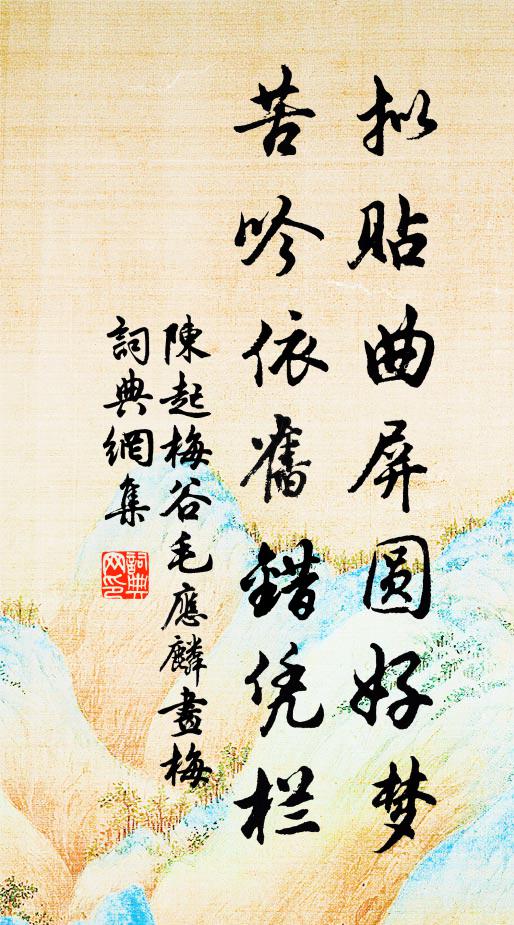 拟贴曲屏圆好梦
苦吟依舊錯凭栏
陳起梅谷毛應麟畫梅
詞典網集
詞典网印